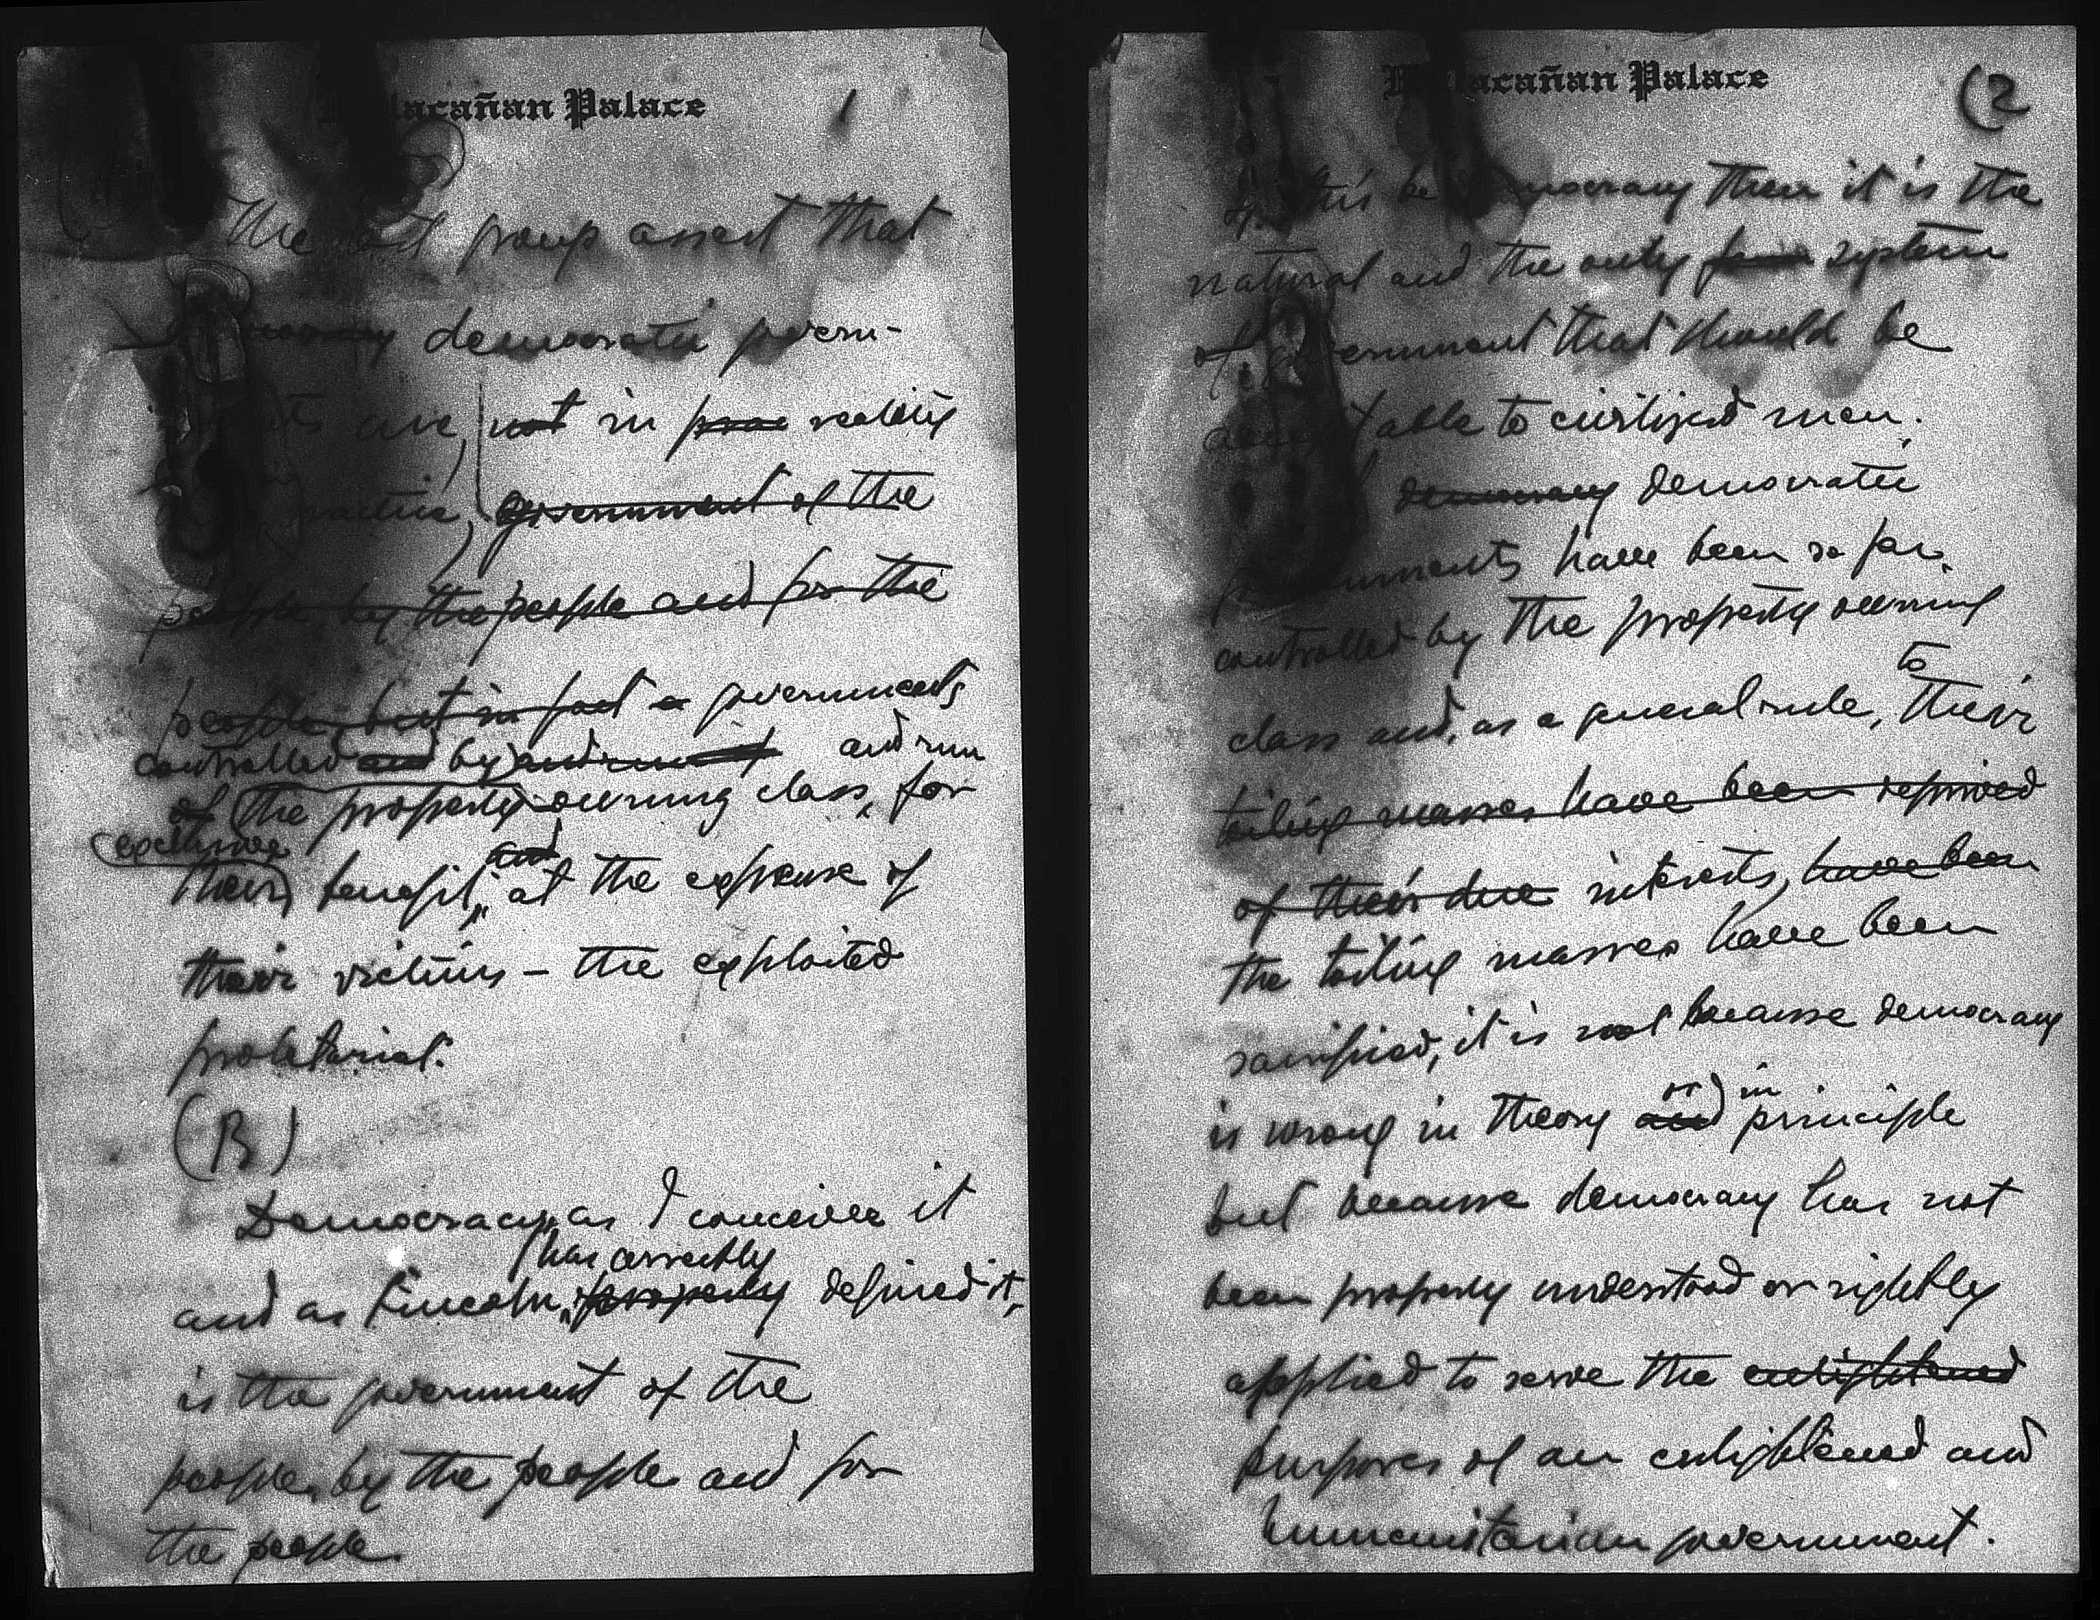 Malacañan Palace
1
The last group assert that
democracy democratic govern-
ments are, not in prac reality
practice, government of the
people, by the people and for the
people, but in fact a governments
controlled and by and run
of the property owning class, for
exclusive
their benefit, and at the expense of
their victims – the exploited
proletariat.
(B)
Democracy, as I conceive it
has correctly
and as Lincoln properly defined it,
is the government of the
people, by the people and for
the people.
Malacañan Palace
(2
If this be democracy then it is the
natural and the only form system
of government that should be
acceptable to civilized men.
democracy democratic
governments have been so far
controlled by the property owning
to
class and, as a general rule, their
toiling masses have been deprived
of their due interests, have been
the toiling masses have been
sacrificed, it is not because democracy
or in
is wrong in theory and principle
but because democracy has not
been properly understood or rightly
applied to serve the enlightened
purposes of an enlightened and
humanitarian government.